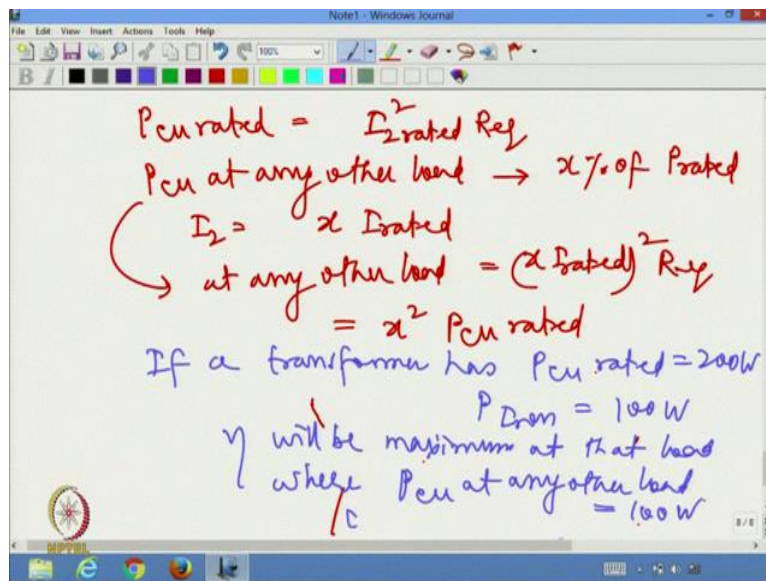 Note1 - Windows Journal
File Edit View Insert Actions Tools Help
100%
B I
Pcu rated = I₂²rated Req
Pcu at any other load → x% of Prated
I₂ = x Irated
at any other load = (x Irated)² Req
= x² Pcu rated
If a transformer has Pcu rated = 200W
PIron = 100W
η will be maximum at that load
where Pcu at any other load
= 100W
NPTEL
8/8